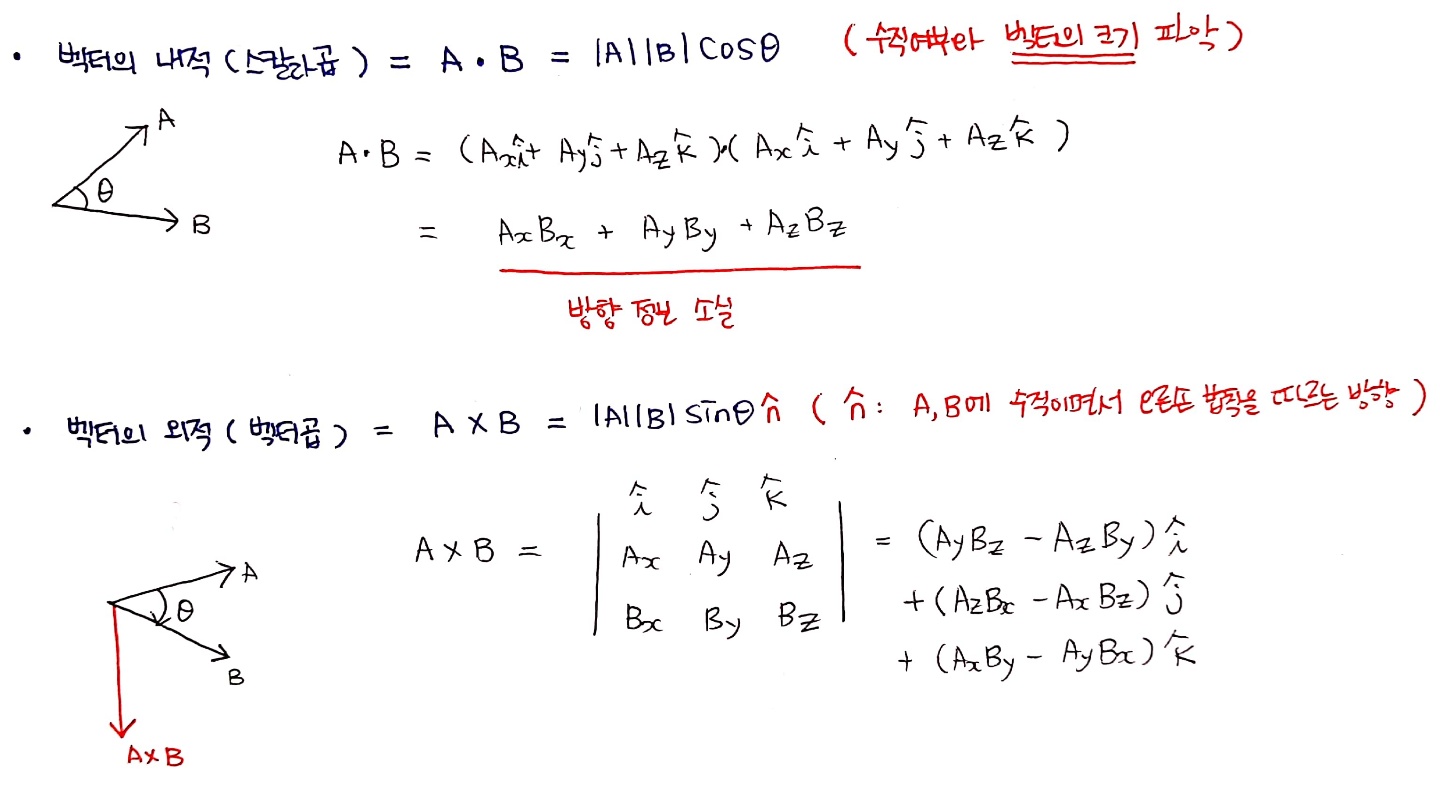 • 벡터의 내적 (스칼라곱) = A • B = |A||B| Cosθ (수직여부와 벡터의 크기 파악)
A
θ
B
A • B = (Axî + Ayĵ + Azk̂)•(Axî + Ayĵ + Azk̂)
= AxBx + AyBy + AzBz
방향 정보 소실
• 벡터의 외적 (벡터곱) = A × B = |A||B| sinθ n̂ (n̂ : A, B에 수직이면서 오른손 법칙을 따르는 방향)
î ĵ k̂
A × B = | Ax Ay Az | = (AyBz - AzBy) î
+ (AzBx - AxBz) ĵ
Bx By Bz
+ (AxBy - AyBx) k̂
A
θ
B
A×B